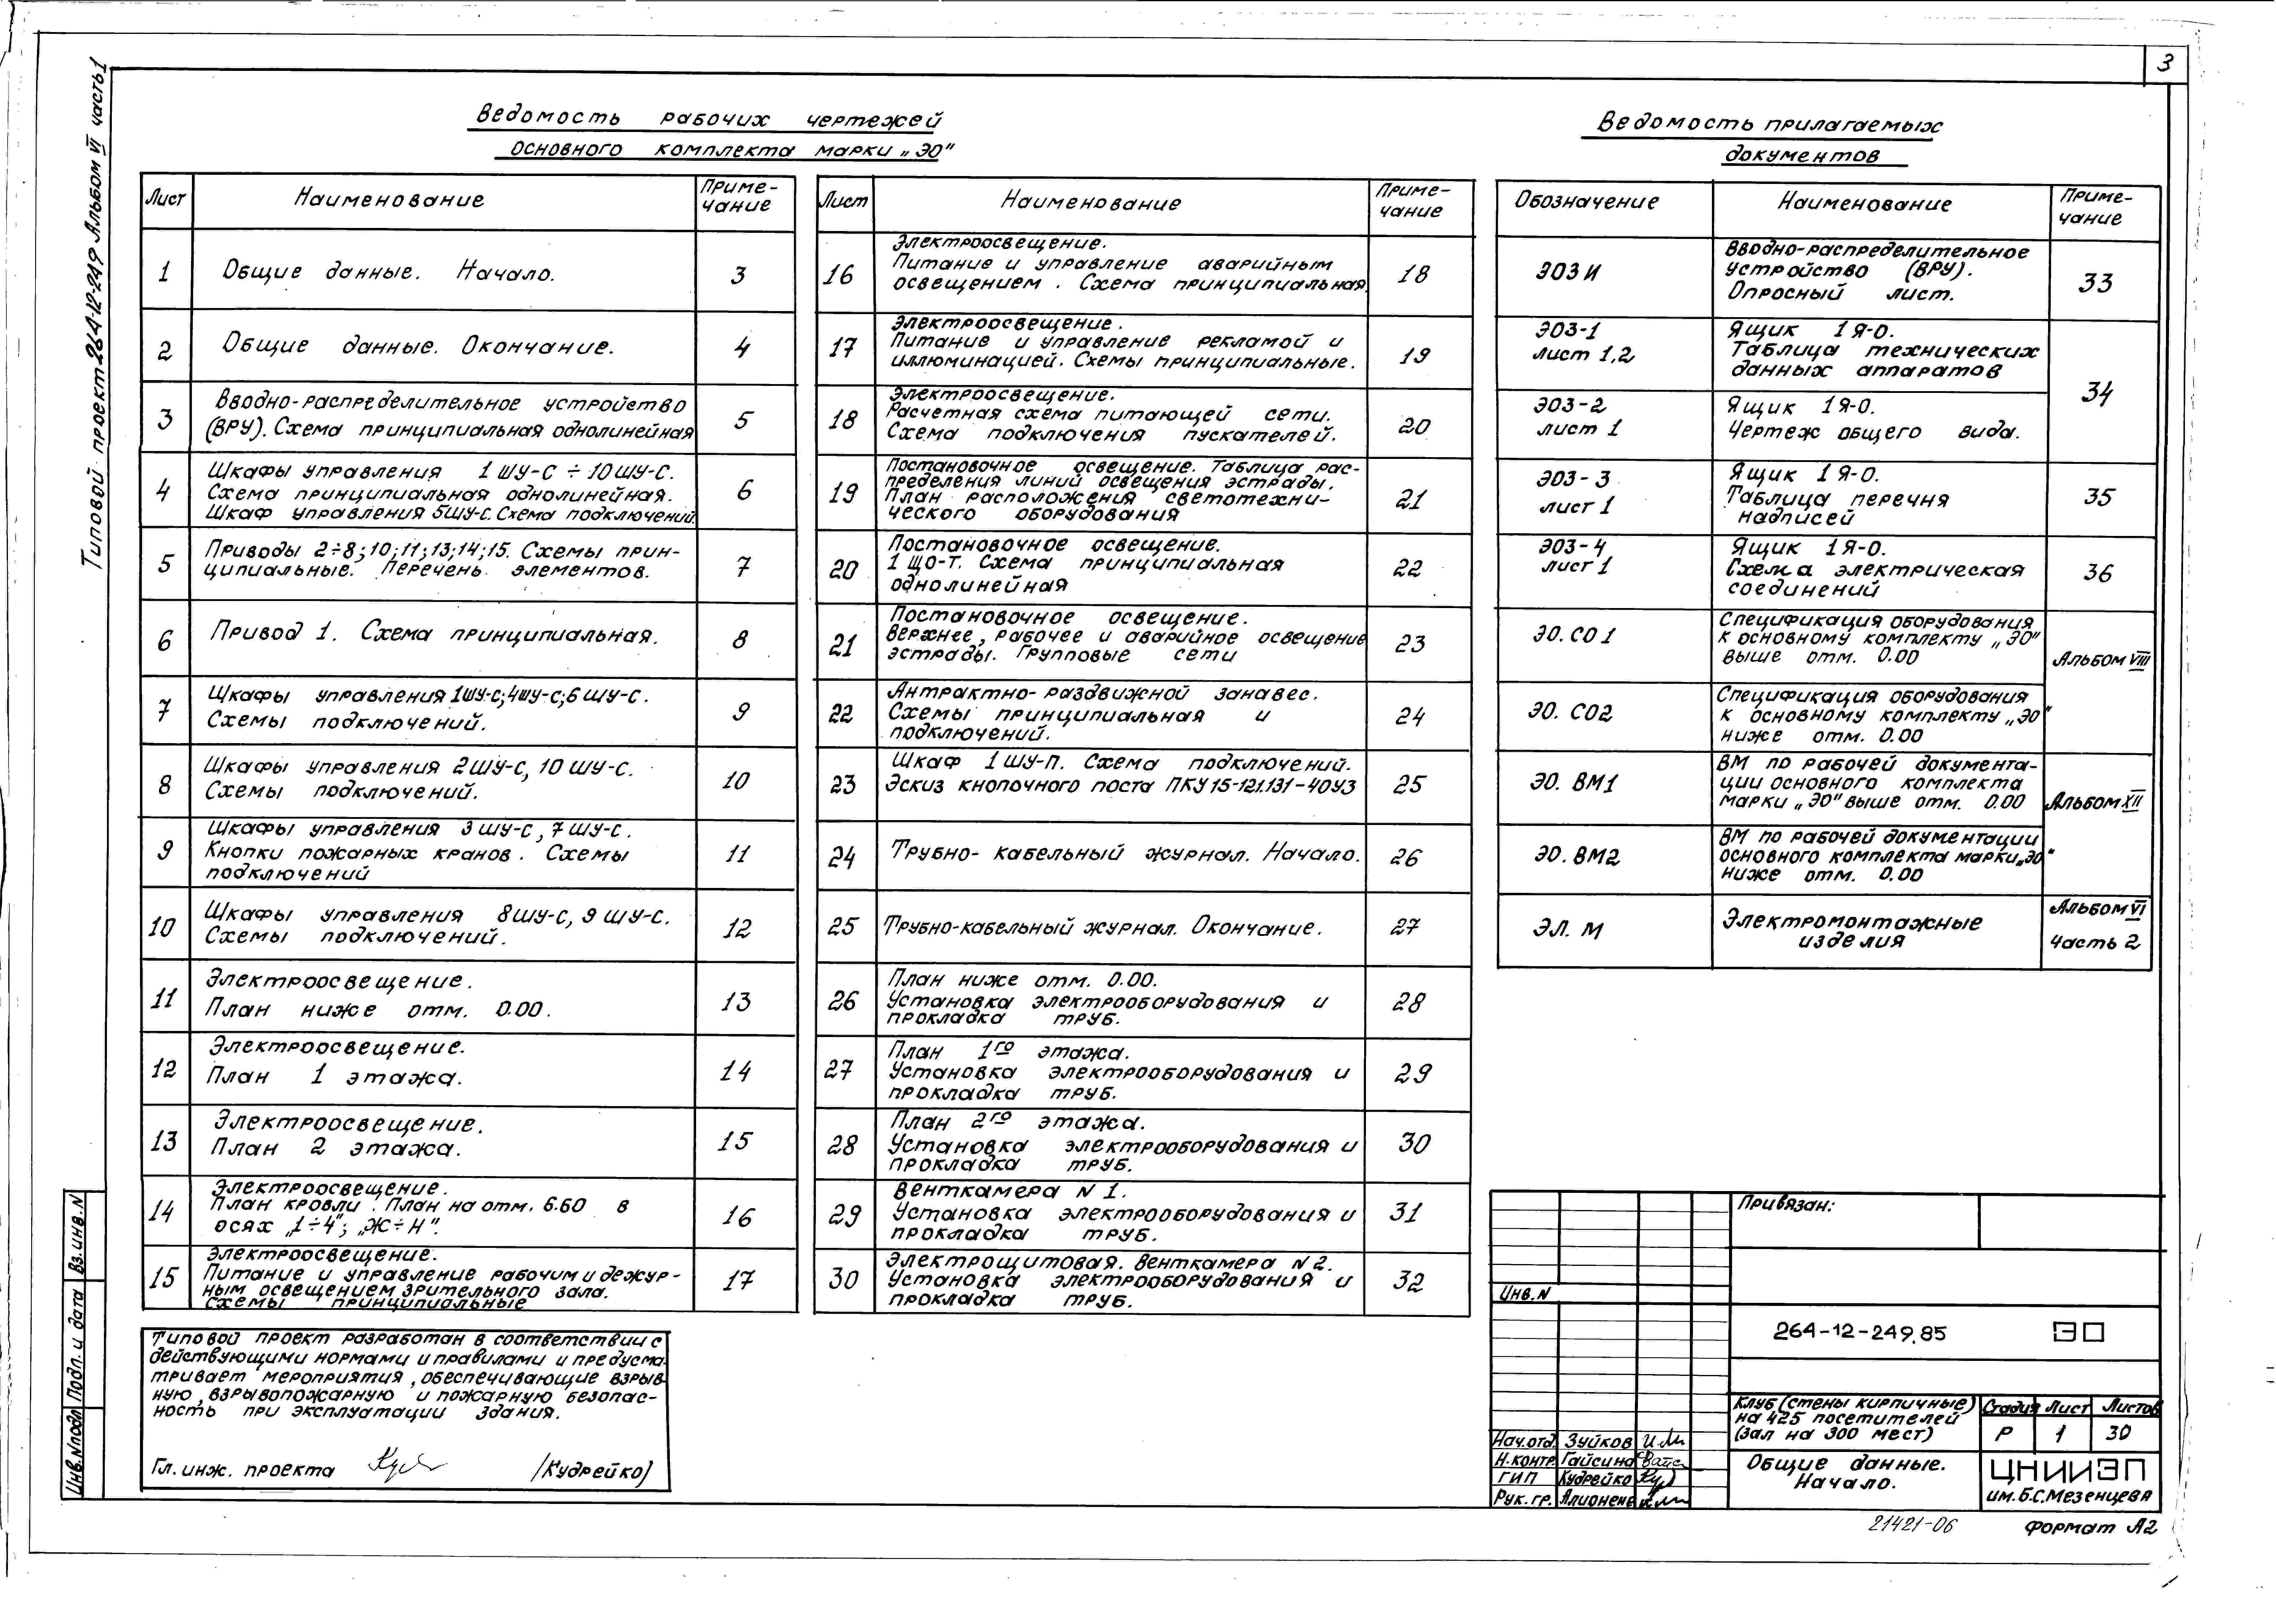 3
Типовой проект 264-12-249 Альбом VI часть 1
Ведомость рабочих чертежей
основного комплекта марки „ЭО"
Лист Наименование Приме-
чание
1 Общие данные. Начало. 3
2 Общие данные. Окончание. 4
3 Вводно-распределительное устройство
(ВРУ). Схема принципиальная однолинейная 5
4 Шкафы управления 1ШУ-С ÷ 10ШУ-С.
Схема принципиальная однолинейная. 6
Шкаф управления 5ШУ-С. Схема подключений.
5 Приводы 2÷8; 10; 11; 13; 14; 15. Схемы прин-
ципиальные. Перечень элементов. 7
6 Привод 1. Схема принципиальная. 8
7 Шкафы управления 1ШУ-С; 4ШУ-С; 6ШУ-С.
Схемы подключений. 9
8 Шкафы управления 2ШУ-С, 10ШУ-С.
Схемы подключений. 10
9 Шкафы управления 3ШУ-С, 7ШУ-С.
Кнопки пожарных кранов. Схемы 11
подключений
10 Шкафы управления 8ШУ-С, 9ШУ-С.
Схемы подключений. 12
11 Электроосвещение.
План ниже отм. 0.00. 13
12 Электроосвещение.
План 1 этажа. 14
13 Электроосвещение.
План 2 этажа. 15
14 Электроосвещение.
План кровли. План на отм. 6.60 в 16
осях „1÷4"; „Ж÷Н".
15 Электроосвещение.
Питание и управление рабочим и дежур- 17
ным освещением зрительного зала.
Схемы принципиальные
Лист Наименование Приме-
чание
16 Электроосвещение.
Питание и управление аварийным 18
освещением. Схема принципиальная.
17 Электроосвещение.
Питание и управление рекламой и 19
иллюминацией. Схемы принципиальные.
18 Электроосвещение.
Расчетная схема питающей сети. 20
Схема подключения пускателей.
19 Постановочное освещение. Таблица рас-
пределения линий освещения эстрады. 21
План расположения светотехни-
ческого оборудования
20 Постановочное освещение.
1 ЩО-Т. Схема принципиальная 22
однолинейная
21 Постановочное освещение.
Верхнее, рабочее и аварийное освещение 23
эстрады. Групповые сети
22 Антрактно-раздвижной занавес.
Схемы принципиальная и 24
подключений.
23 Шкаф 1ШУ-П. Схема подключений.
Эскиз кнопочного поста ПКУ15-121.131-40У3 25
24 Трубно-кабельный журнал. Начало. 26
25 Трубно-кабельный журнал. Окончание. 27
26 План ниже отм. 0.00.
Установка электрооборудования и 28
прокладка труб.
27 План 1го этажа.
Установка электрооборудования и 29
прокладка труб.
28 План 2го этажа.
Установка электрооборудования и 30
прокладка труб.
29 Венткамера N 1.
Установка электрооборудования и 31
прокладка труб.
30 Электрощитовая. Венткамера N 2.
Установка электрооборудования и 32
прокладка труб.
Ведомость прилагаемых
документов
Обозначение Наименование Приме-
чание
ЭОЗИ Вводно-распределительное
устройство (ВРУ). 33
Опросный лист.
ЭОЗ-1 Ящик 1Я-О.
лист 1,2 Таблица технических
данных аппаратов
34
ЭОЗ-2 Ящик 1Я-О.
лист 1 Чертеж общего вида.
ЭОЗ-3 Ящик 1Я-О.
лист 1 Таблица перечня 35
надписей
ЭОЗ-4 Ящик 1Я-О.
лист 1 Схема электрическая 36
соединений
ЭО.СО1 Спецификация оборудования
к основному комплекту „ЭО"
выше отм. 0.00 Альбом VIII
ЭО.СО2 Спецификация оборудования
к основному комплекту „ЭО"
ниже отм. 0.00
ЭО.ВМ1 ВМ по рабочей документа-
ции основного комплекта
марки „ЭО" выше отм. 0.00 Альбом XII
ЭО.ВМ2 ВМ по рабочей документации
основного комплекта марки „ЭО"
ниже отм. 0.00
ЭЛ.М Электромонтажные Альбом VI
изделия часть 2
Типовой проект разработан в соответствии с
действующими нормами и правилами и предусма-
тривает мероприятия, обеспечивающие взрыв-
ную, взрывопожарную и пожарную безопас-
ность при эксплуатации здания.
Гл. инж. проекта /Кудрейко/
Инв.Nподл Подп. и дата Вз.инв.N
Привязан:
Инв.N
264-12-249.85 ЭО
Клуб (стены кирпичные)
на 425 посетителей
(зал на 300 мест)
Стадия Лист Листов
Р 1 30
Нач.отд. Зуйков
Н.контр Гайсина
ГИП Кудрейко
Рук.гр.
Общие данные.
Начало.
ЦНИИЭП
им. Б.С.Мезенцева
21421-06
формат А2